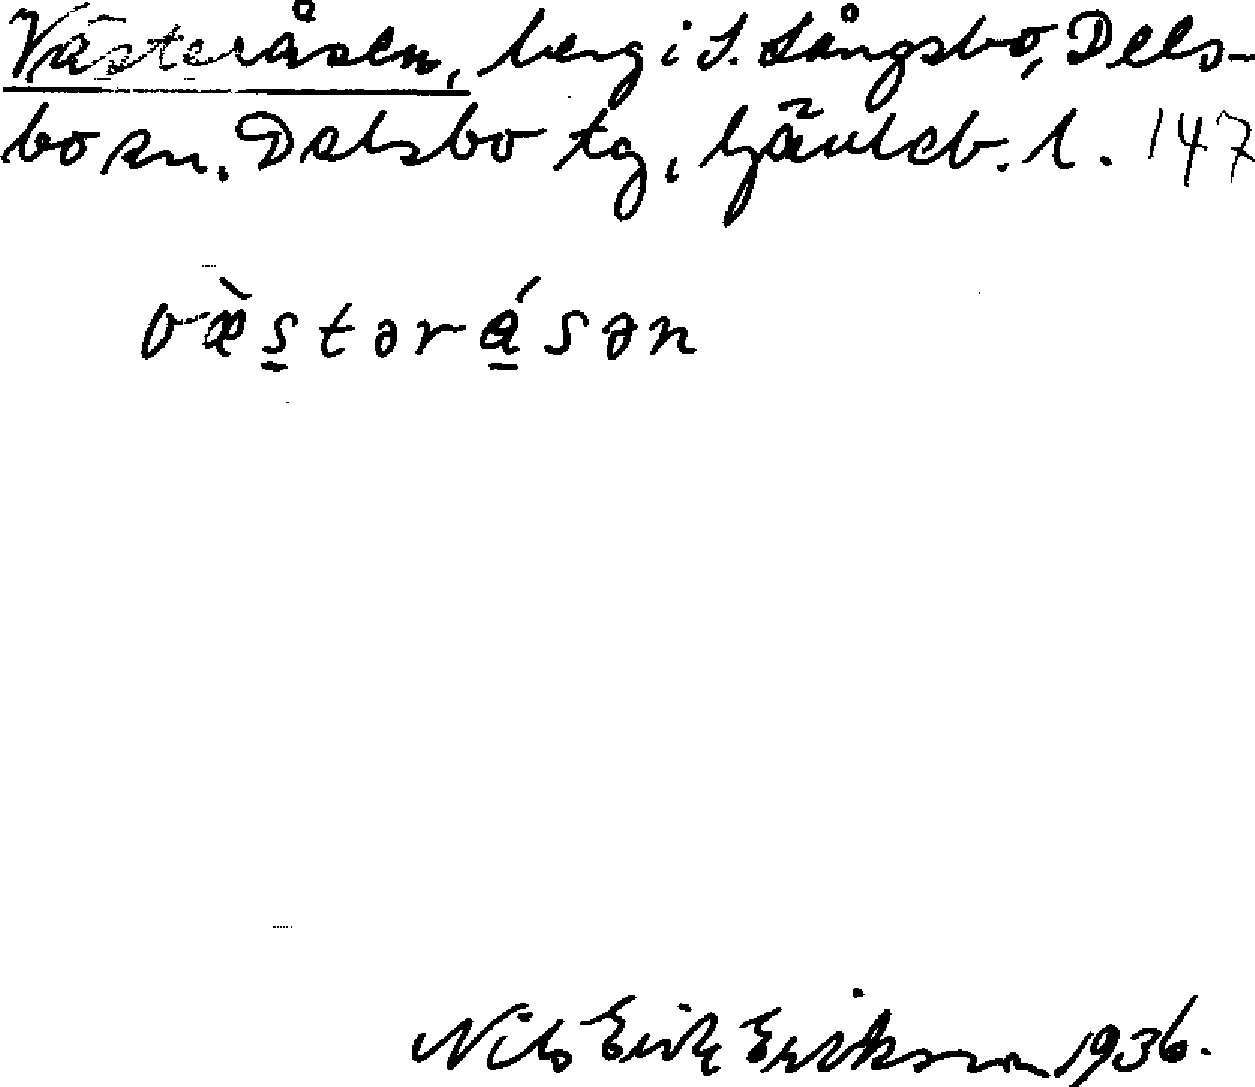 Västeråsen, berg i S. Långsbo, Dels-
bo sn. Delsbo tg, Gävleb. l. 147
væ̀s̲tərá̲sən
Nils Erik Eriksson 1936.